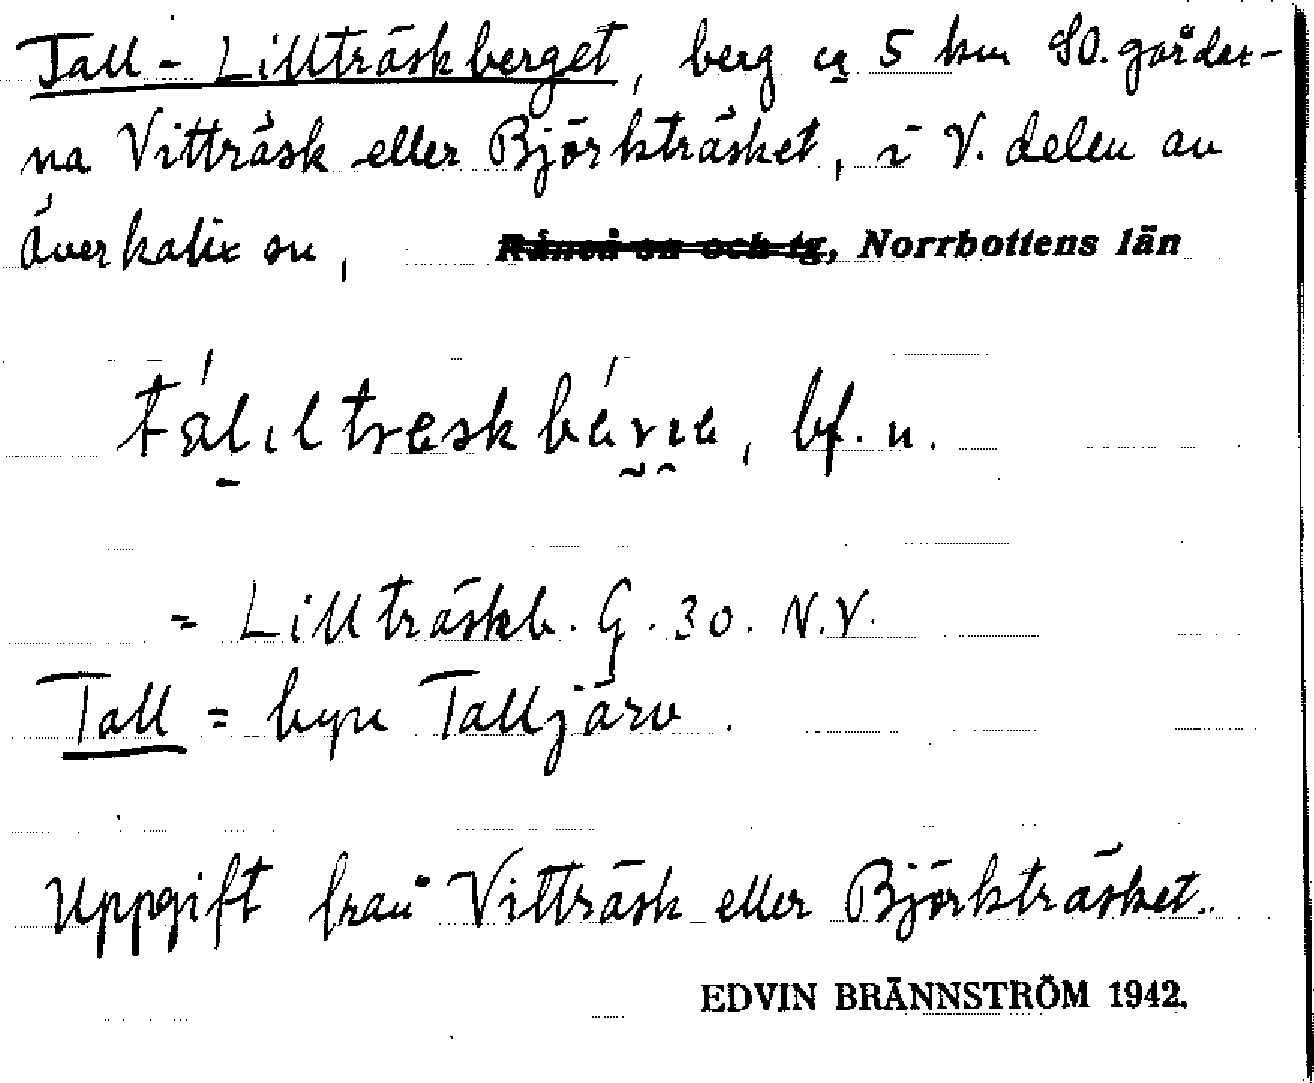 Tall-Lillträskberget, berg ca 5 km SO. gårdar-
na Vitträsk eller Björkträsket, i V. delen av
överkalix sn,
Råneå sn och tg, Norrbottens län
bf. n.
= Lillträskb. G. 30. N.V.
Tall = byn Talljärv.
Uppgift från Vitträsk eller Björkträsket.
EDVIN BRÄNNSTRÖM 1942.